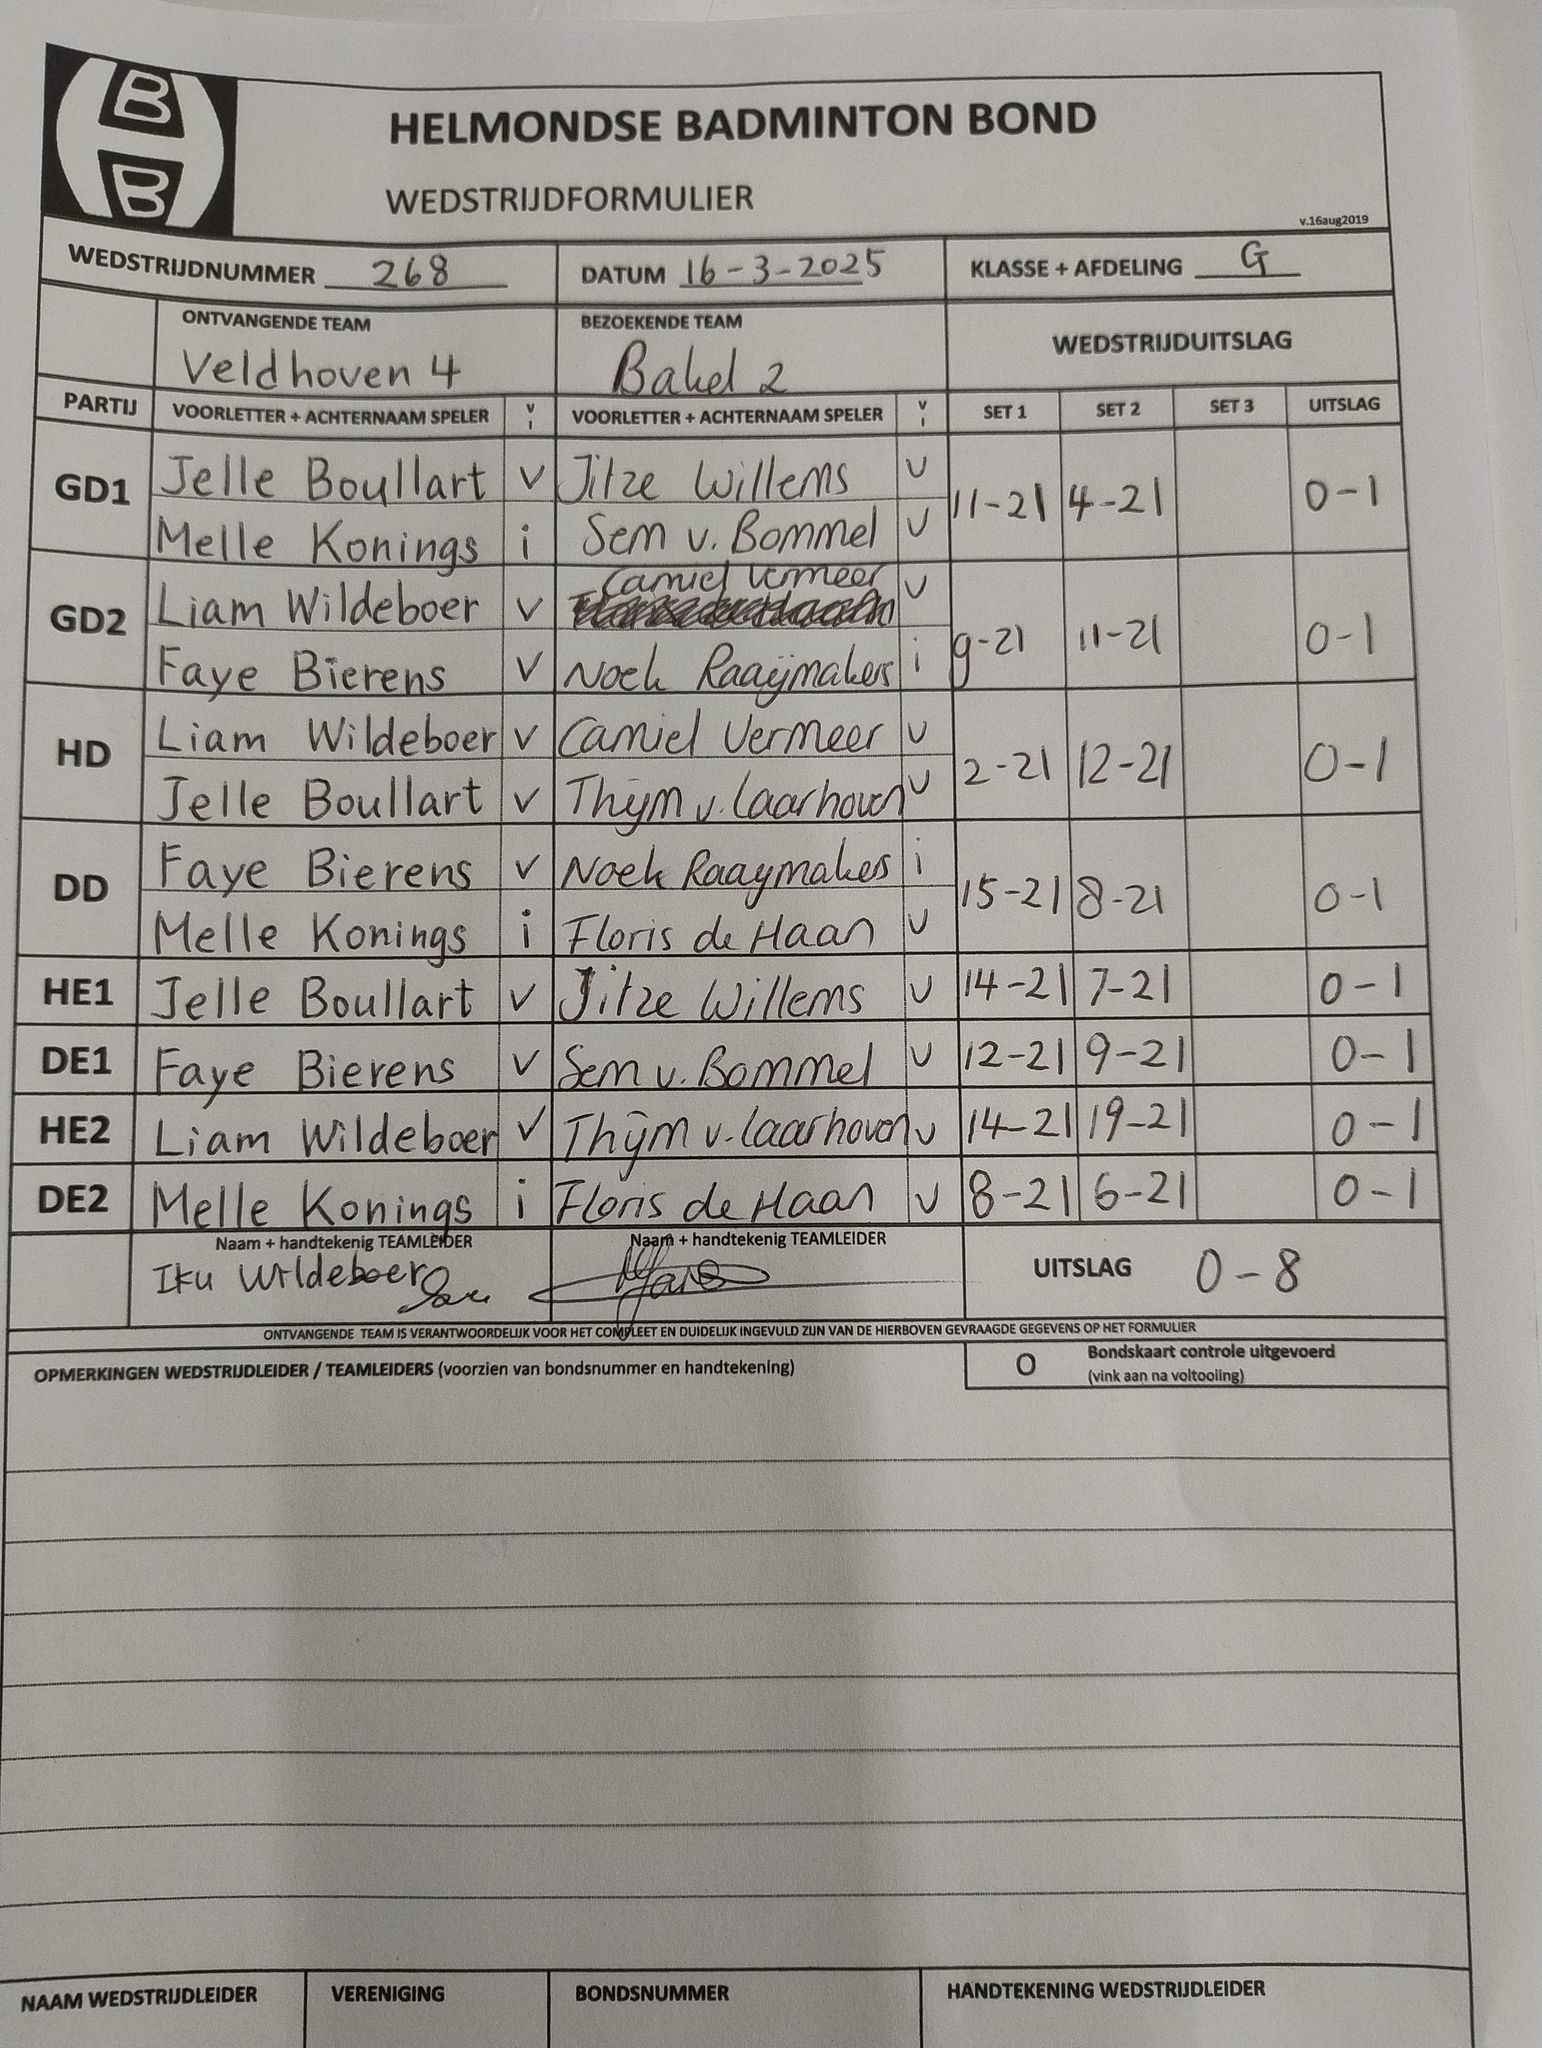 B
B
HELMONDSE BADMINTON BOND
WEDSTRIJDFORMULIER
v.16aug2019
WEDSTRIJDNUMMER 268 DATUM 16-3-2025 KLASSE + AFDELING G
ONTVANGENDE TEAM BEZOEKENDE TEAM WEDSTRIJDUITSLAG
Veldhoven 4 Bakel 2
PARTIJ VOORLETTER + ACHTERNAAM SPELER V I VOORLETTER + ACHTERNAAM SPELER V I SET 1 SET 2 SET 3 UITSLAG
GD1 Jelle Boullart v Jitze Willems v 11-21 4-21 0-1
Melle Konings i Sem v. Bommel v
GD2 Liam Wildeboer v Camiel Vermeer v 9-21 11-21 0-1
Faye Bierens v Noek Raaijmakers i
HD Liam Wildeboer v Camiel Vermeer v 2-21 12-21 0-1
Jelle Boullart v Thijm v. Laarhoven v
DD Faye Bierens v Noek Raaymakers i 15-21 8-21 0-1
Melle Konings i Floris de Haan v
HE1 Jelle Boullart v Jitze Willems v 14-21 7-21 0-1
DE1 Faye Bierens v Sem v. Bommel v 12-21 9-21 0-1
HE2 Liam Wildeboer v Thijm v. Laarhoven v 14-21 19-21 0-1
DE2 Melle Konings i Floris de Haan v 8-21 6-21 0-1
Naam + handtekenig TEAMLEIDER Naam + handtekenig TEAMLEIDER
Iku Wildeboer UITSLAG 0-8
ONTVANGENDE TEAM IS VERANTWOORDELIJK VOOR HET COMPLEET EN DUIDELIJK INGEVULD ZIJN VAN DE HIERBOVEN GEVRAAGDE GEGEVENS OP HET FORMULIER
OPMERKINGEN WEDSTRIJDLEIDER / TEAMLEIDERS (voorzien van bondsnummer en handtekening) O Bondskaart controle uitgevoerd
(vink aan na voltooiing)
NAAM WEDSTRIJDLEIDER VERENIGING BONDSNUMMER HANDTEKENING WEDSTRIJDLEIDER